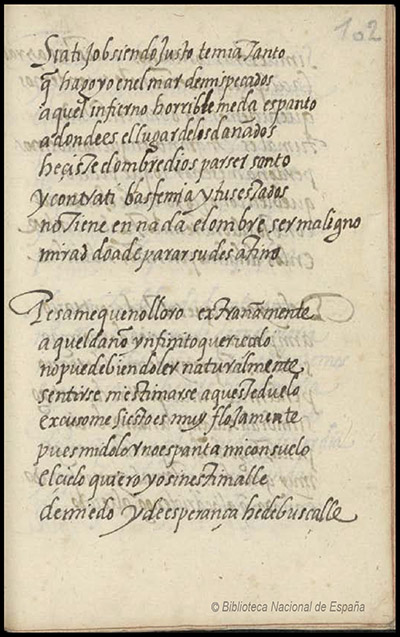 102
Si a ti Job siendo justo temia tanto
q̃ hago yo en el mar de mis pecados
aquel infierno horrible me da espanto
a donde es el lugar de los dañados
heçiste el ombre dios par ser santo
y contra ti basfemia y tus estados
no tiene en nada el ombre ser maligno
mirad do a de parar su desatino
Pesame que no lloro extrañamente
aquel daño ynfinito que rreçelo
no puede bien doler naturalmente
sentirse ni estimarse aqueste duelo
excusome si esto es muy flojamente
pues mi dolor no espanta mi consuelo
el cielo quiero yo sin estimalle
de miedo y de esperança he de buscalle
© Biblioteca Nacional de España